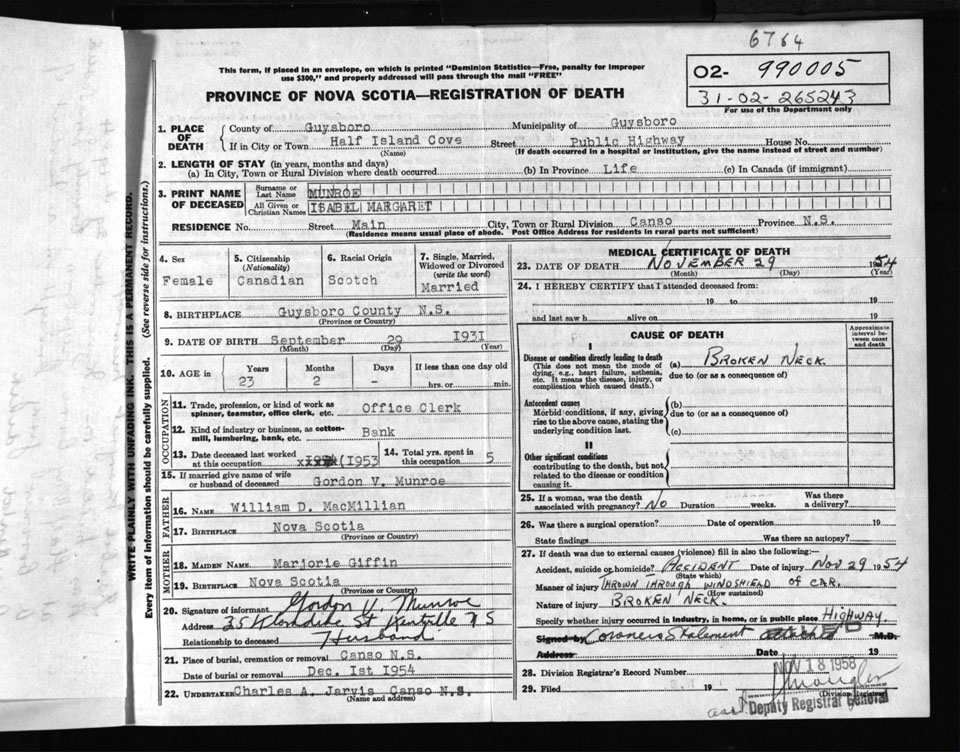 6764
This form, if placed in an envelope, on which is printed "Dominion Statistics—Free, penalty for improper
use $300," and properly addressed will pass through the mail "FREE"
PROVINCE OF NOVA SCOTIA—REGISTRATION OF DEATH
02- 990005
31-02-265243
For use of the Department only
WRITE PLAINLY WITH UNFADING INK. THIS IS A PERMANENT RECORD.
Every item of information should be carefully supplied. (See reverse side for instructions.)
1. PLACE OF DEATH
County of Guysboro Municipality of Guysboro
If in City or Town Half Island Cove Street Public Highway House No.
(Name) (If death occurred in a hospital or institution, give the name instead of street and number)
2. LENGTH OF STAY (in years, months and days)
(a) In City, Town or Rural Division where death occurred (b) In Province Life (c) In Canada (if immigrant)
3. PRINT NAME OF DECEASED
Surname or Last Name MUNROE
All Given or Christian Names ISABEL MARGARET
RESIDENCE No. Street Main City, Town or Rural Division Canso Province N.S.
(Residence means usual place of abode. Post Office Address for residents in rural parts not sufficient)
4. Sex
Female
5. Citizenship (Nationality)
Canadian
6. Racial Origin
Scotch
7. Single, Married, Widowed or Divorced (write the word)
Married
8. BIRTHPLACE Guysboro County N.S.
(Province or Country)
9. DATE OF BIRTH September 29 1931
(Month) (Day) (Year)
10. AGE in Years Months Days If less than one day old
23 2 - hrs. or min.
OCCUPATION
11. Trade, profession, or kind of work as spinner, teamster, office clerk, etc. Office Clerk
12. Kind of industry or business, as cotton-mill, lumbering, bank, etc. Bank
13. Date deceased last worked at this occupation (1953
14. Total yrs. spent in this occupation 5
15. If married give name of wife or husband of deceased Gordon V. Munroe
FATHER
16. NAME William D. MacMillian
17. BIRTHPLACE Nova Scotia
(Province or Country)
MOTHER
18. MAIDEN NAME Marjorie Giffin
19. BIRTHPLACE Nova Scotia
(Province or Country)
20. Signature of informant Gordon V. Munroe
Address 35 Klondike St Kentville N S
Relationship to deceased Husband
21. Place of burial, cremation or removal Canso N.S.
Date of burial or removal Dec. 1st 1954
22. UNDERTAKER Charles A. Jarvis Canso N.S.
(Name and address)
MEDICAL CERTIFICATE OF DEATH
23. DATE OF DEATH NOVEMBER 29 1954
(Month) (Day) (Year)
24. I HEREBY CERTIFY that I attended deceased from:
19 to 19
and last saw h alive on 19
CAUSE OF DEATH
Approximate interval between onset and death
I
Disease or condition directly leading to death (a) BROKEN NECK.
(This does not mean the mode of dying, e.g., heart failure, asthenia, etc. It means the disease, injury, or complication which caused death.)
due to (or as a consequence of)
Antecedent causes (b)
Morbid conditions, if any, giving rise to the above cause, stating the underlying condition last.
due to (or as a consequence of)
(c)
II
Other significant conditions
contributing to the death, but not related to the disease or condition causing it.
25. If a woman, was the death associated with pregnancy? NO Duration weeks. Was there a delivery?
26. Was there a surgical operation? Date of operation 19
State findings Was there an autopsy?
27. If death was due to external causes (violence) fill in also the following:—
Accident, suicide or homicide? ACCIDENT Date of injury NOV 29 1954
(State which)
Manner of injury THROWN THROUGH WINDSHIELD OF CAR.
(How sustained)
Nature of injury BROKEN NECK.
Specify whether injury occurred in industry, in home, or in public place HIGHWAY.
Signed by Coroners Statement attached M.D.
Address Date 19
28. Division Registrar's Record Number
29. Filed 19
NOV 18 1958
(Division Registrar)
Deputy Registrar General